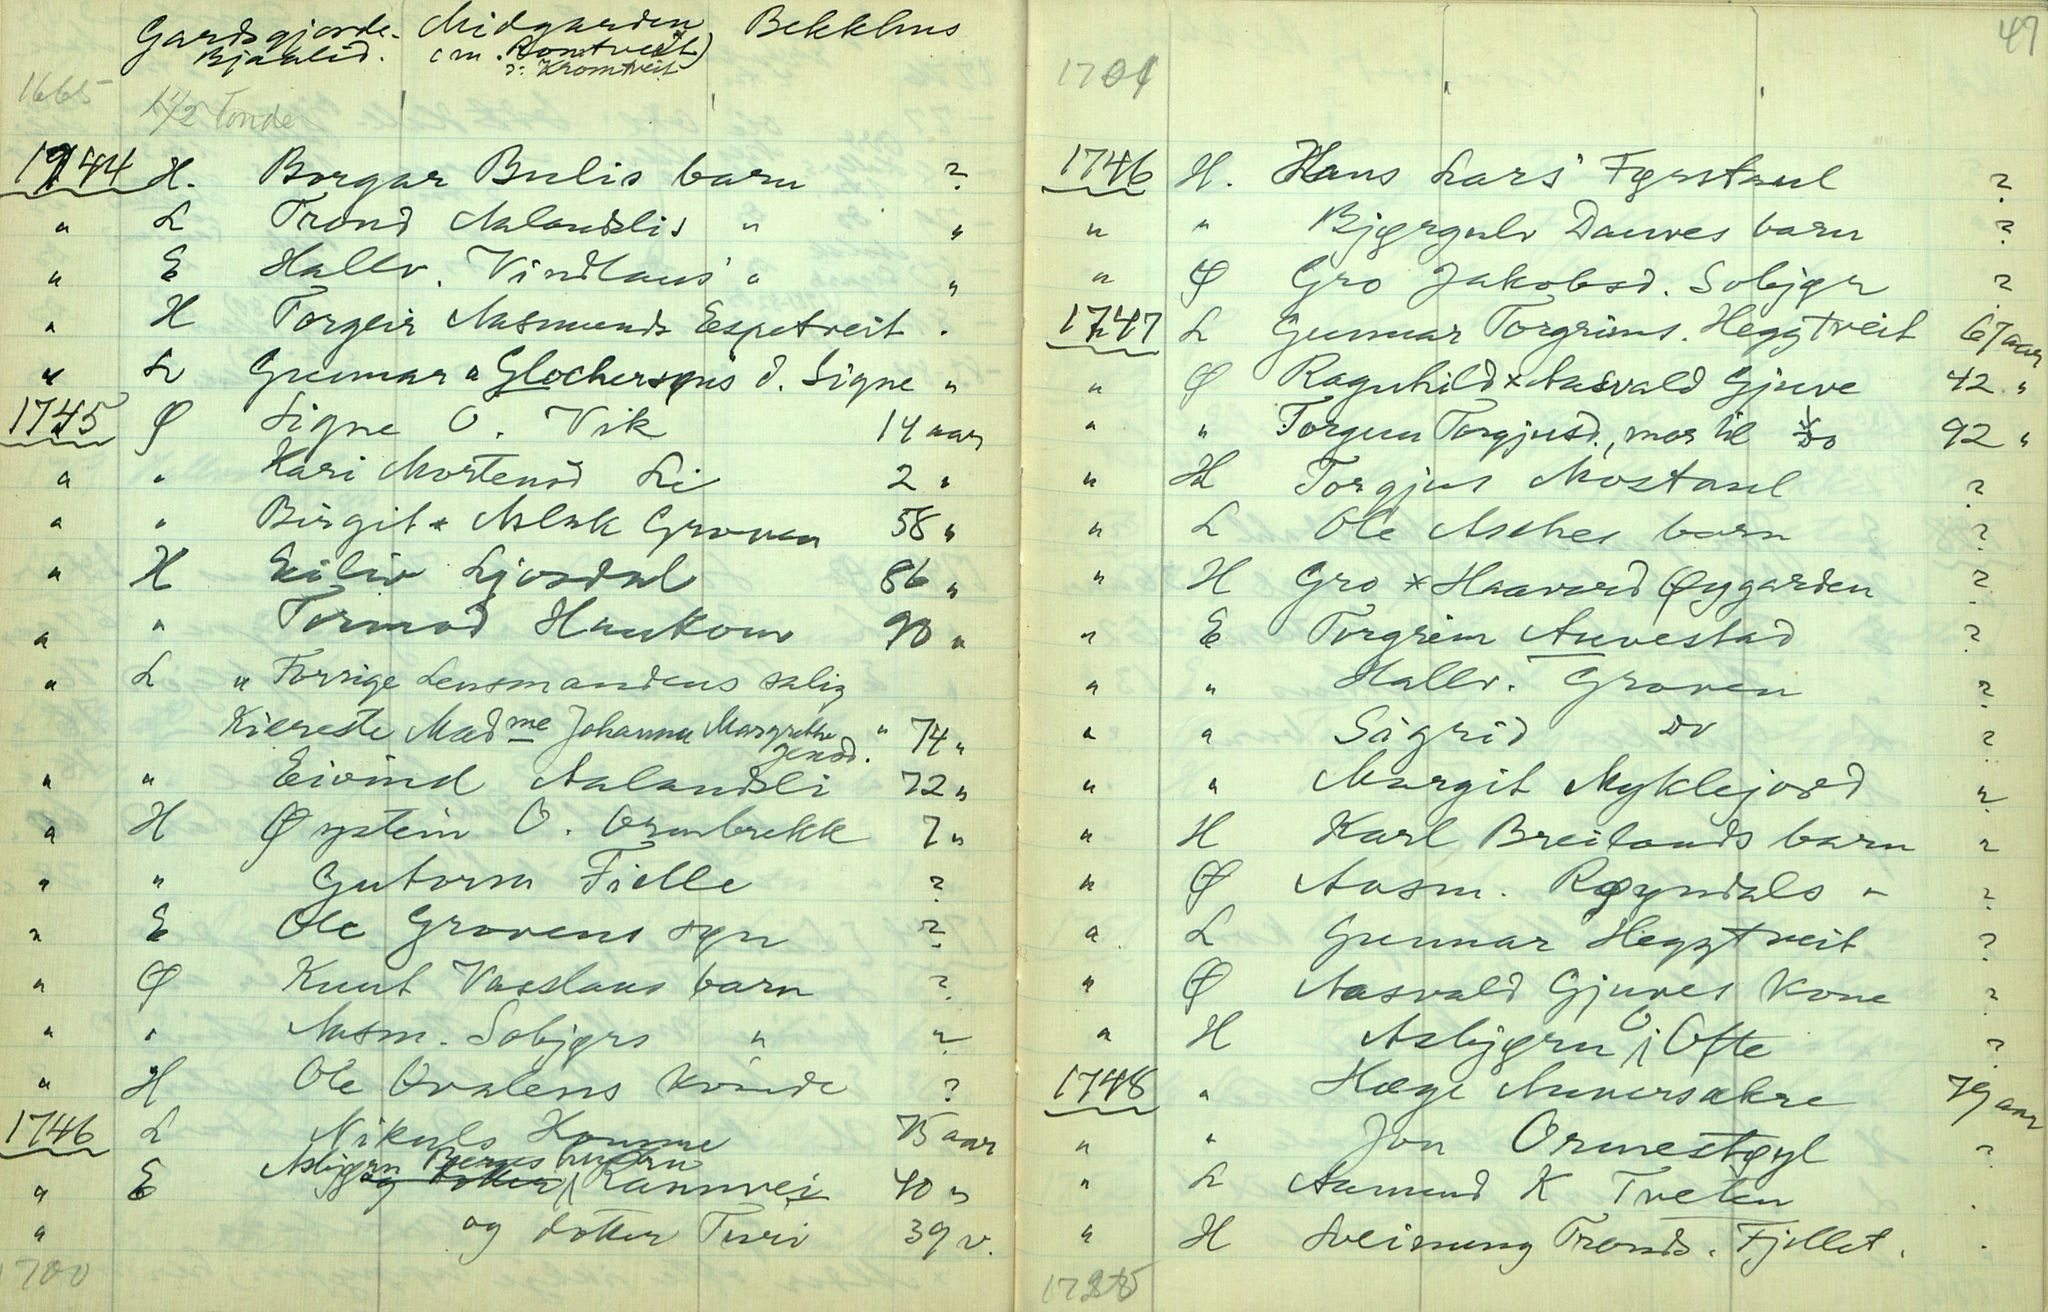 Gardsgjorde. Midgarden Bekkhus
Bjaalid. (m. Romtveit)
ɔ: Kromtveit
1665
1 1/2 Tonde
1744 H. Borgar Bulis barn ?
" L Trond Aalandslis " "
" E Hallv. Vindlaus " "
" H Torgeir Aasmunds Espetveit .
" L Gunnar " Glochersøns d. Signe "
1745 Ø Signe O. Vik 14 aar
" " Kari Mortensd Li 2 "
" " Birgit * Aslak Groven 58 "
" H Eiliv Ljosdal 86 "
" " Tormod Haukom 90 "
" L " Forrige Lensmandens salig
Kiereste Mad me Johanna Margrethe " 74 "
Jensd.
" " Eivind Aalandsli 72 "
" H Øystein O. Ormbrekk 7 "
" " Gutorm Fielle ?
" E Ole Grovens søn ?
" Ø Knut Vaaslaus barn ?
" " Aasm. Sobjørs " "
" H Ole Ovalens kvinde ?
1746 L Nikuls Homme 75 aar
Asbjørn Berges hustru
" E Rannvei 40 "
" og dotter Turi 39 v.
1700
49
1701
1746 H. Hans Lars' Fyrstaul ?
" " Bjørgulv Dauves barn ?
" Ø Gro Jakobsd. Sobjør ?
1747 L Gunnar Torgrims. Heggtveit 67 aar
" Ø Ragnhild * Aasvald Gjuve 42 "
" " Torgun Torgjusd., mor til do 92 "
" H Torgjus Mostaul ?
" L Ole Asches barn ?
" H Gro * Haavard Øygarden ?
" E Torgrim Auvestad ?
" " Hallv. Groven ?
" " Sigrid do ?
" " Margit Myklejord "
" H Karl Breilands barn "
" Ø Aasm. Røyndals " ?
" L Gunnar Heggtveit ?
" Ø Aasvald Gjuves kone ?
" H Asbjørn O Ofte ?
1748 " Hæge Auversakre 79 aar
" " Jon Ormestøyl ?
" L Aamund K Tveten .
" H Sveinung Tronds. Fjellet. .